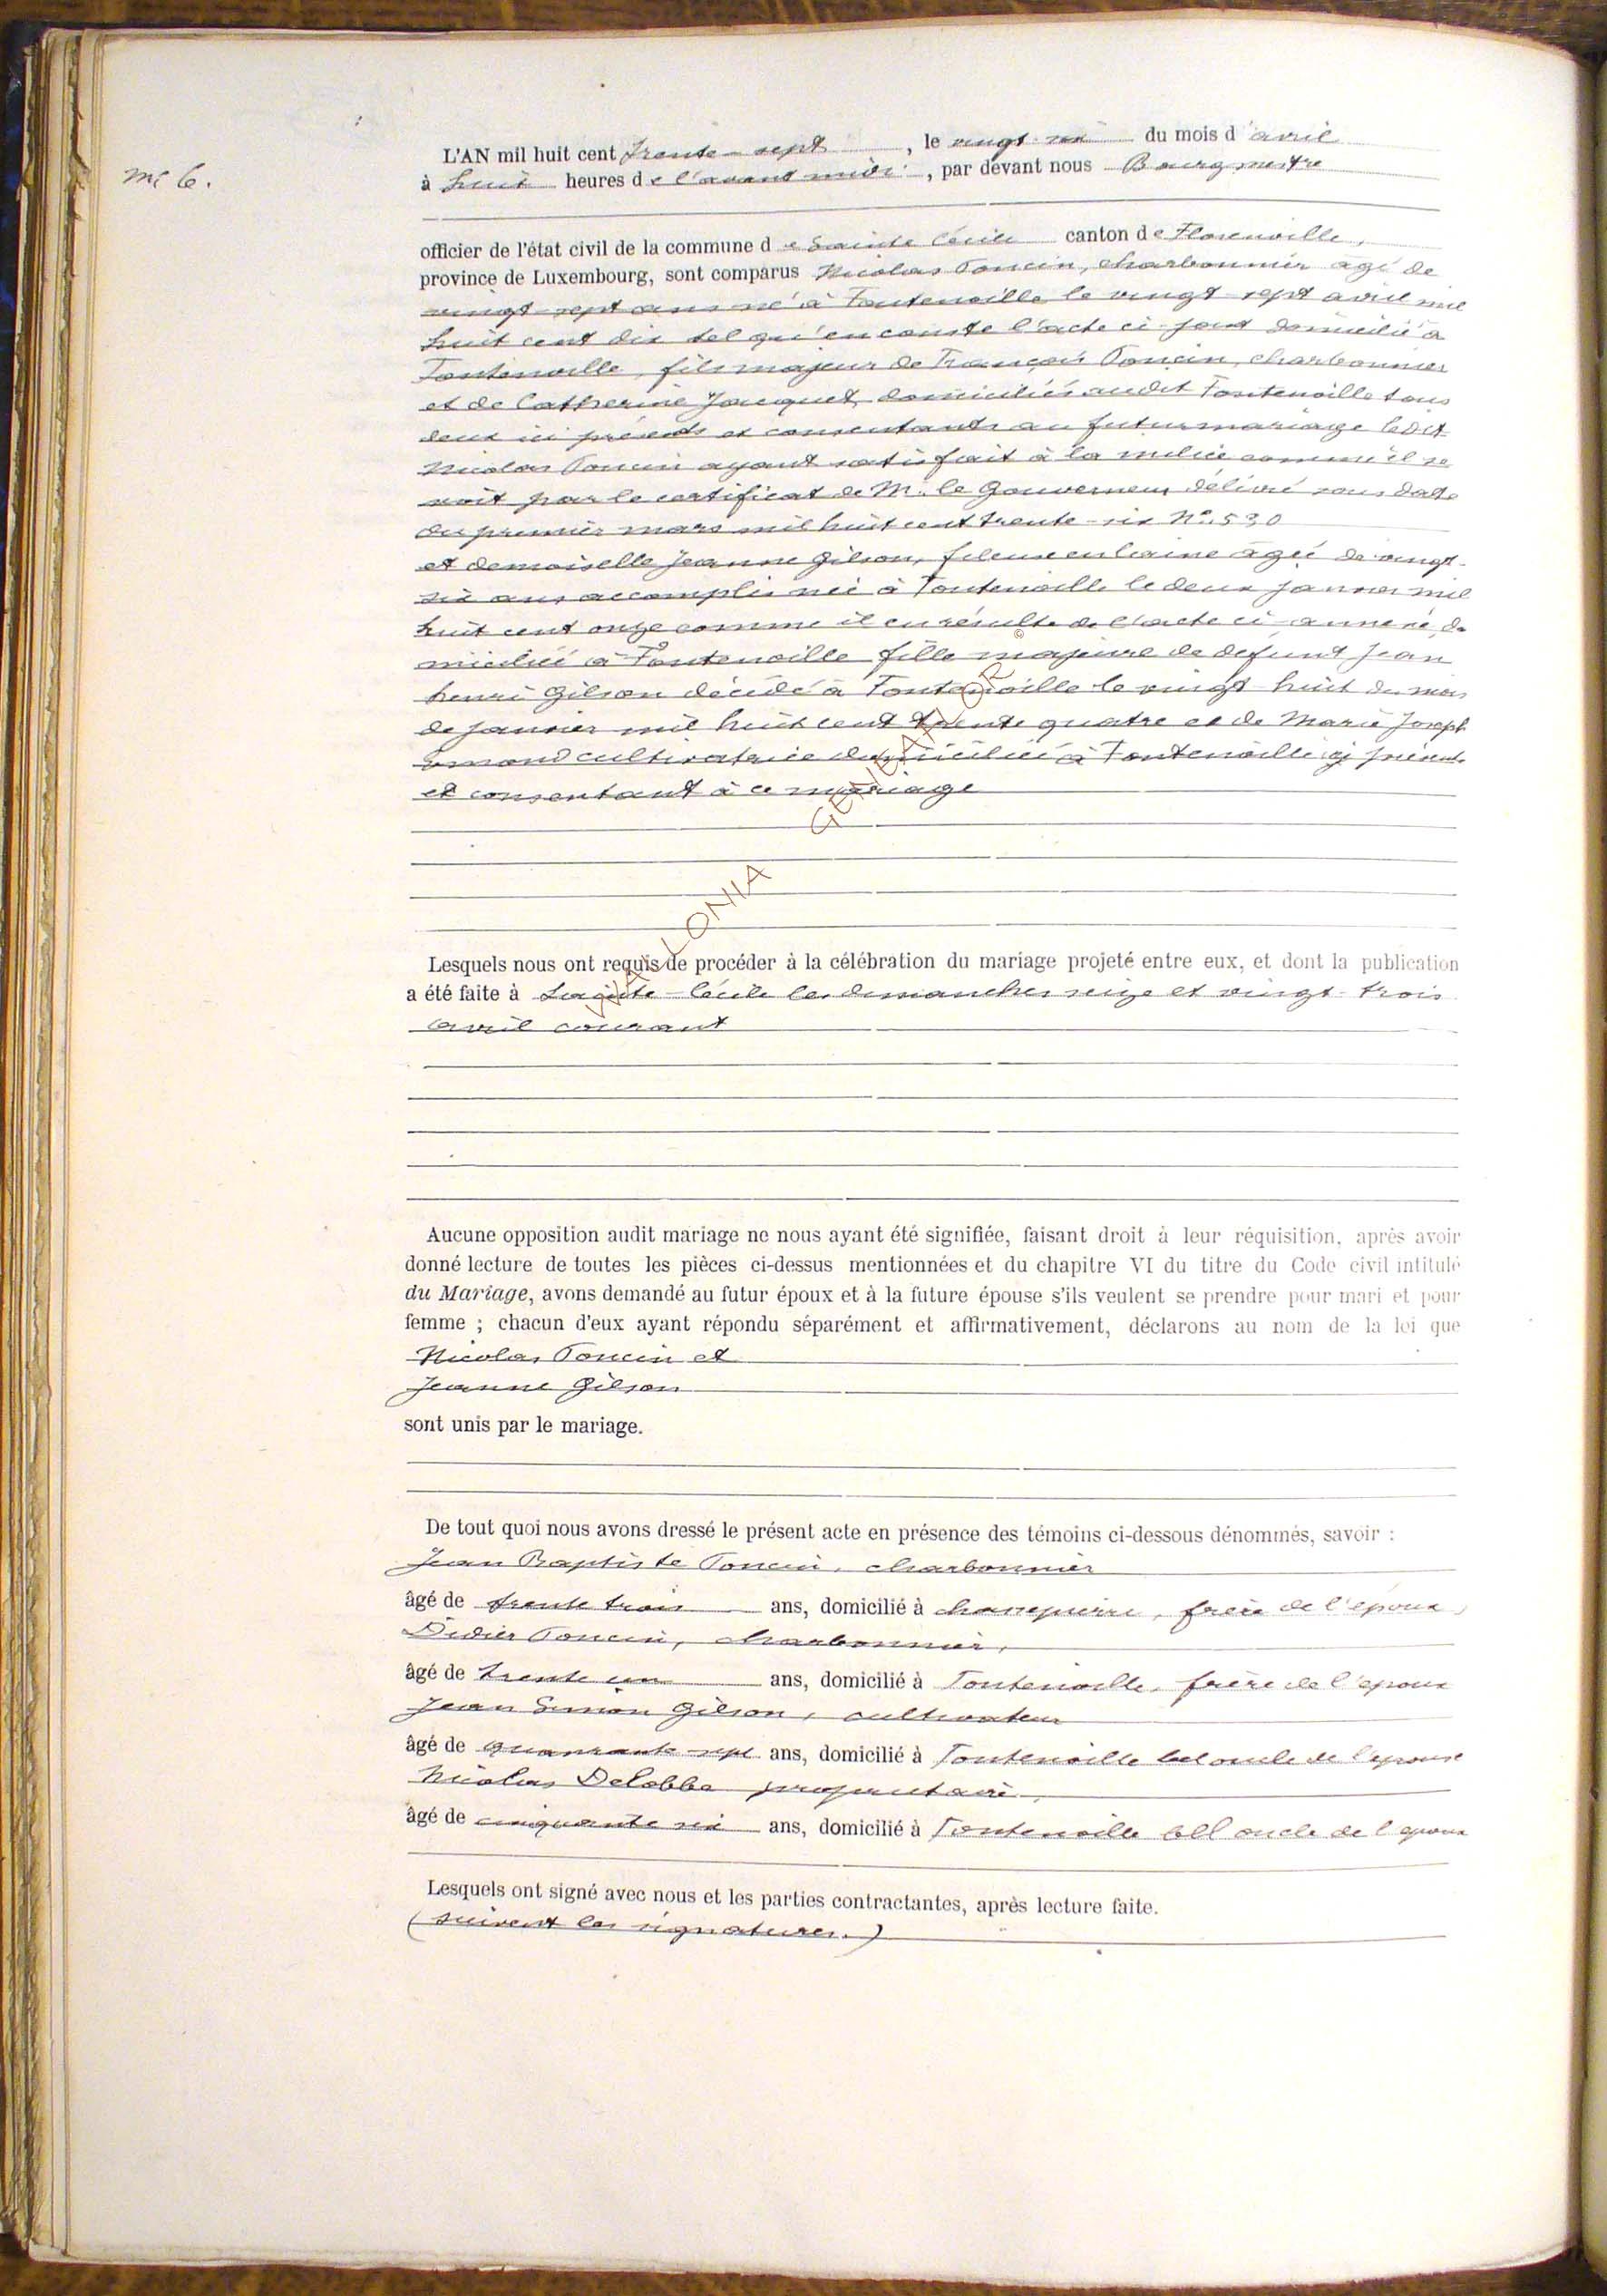 L'AN mil huit cent trente-sept, le vingt-six du mois d'avril
Mt 6.
à huit heures de l'avant midi, par devant nous Bourgmestre
officier de l'état civil de la commune de Sainte Cécile canton de Florenville,
province de Luxembourg, sont comparus Nicolas Poncin, charbonnier agé de
vingt-sept ans né à Fontenoille le vingt-sept avril mil
huit cent dix tel qu'en conste l'acte ci-joint domicilié à
Fontenoille, fils majeur de François Poncin, charbonnier
et de Catherine Jacquet, domiciliés audit Fontenoille tous
deux ici présents et consentants au futur mariage ledit
Nicolas Poncin ayant satisfait à la milice comme il se
voit par le certificat de Mr. le Gouverneur délivré sous date
du premier mars mil huit cent trente-six No. 530
et demoiselle Jeanne Gilson, fileuse en laine agée de vingt-
six ans accomplis née à Fontenoille le deux janvier mil
huit cent onze comme il en résulte de l'acte ci-annexé, do
miciliée à Fontenoille fille majeure de defunt Jean
henri Gilson décédé à Fontenoille le vingt-huit du mois
de janvier mil huit cent trente quatre et de Marie Joseph
cultivatrice domiciliée à Fontenoille ci présente
et consentant à ce mariage
© WALLONIA GENEALOR
Lesquels nous ont requis de procéder à la célébration du mariage projeté entre eux, et dont la publication
a été faite à Sainte-Cécile les dimanches seize et vingt-trois
avril courant
Aucune opposition audit mariage ne nous ayant été signifiée, faisant droit à leur réquisition, après avoir
donné lecture de toutes les pièces ci-dessus mentionnées et du chapitre VI du titre du Code civil intitulé
du Mariage, avons demandé au futur époux et à la future épouse s'ils veulent se prendre pour mari et pour
femme ; chacun d'eux ayant répondu séparément et affirmativement, déclarons au nom de la loi que
Nicolas Poncin et
Jeanne Gilson
sont unis par le mariage.
De tout quoi nous avons dressé le présent acte en présence des témoins ci-dessous dénommés, savoir :
Jean Baptiste Poncin, charbonnier
âgé de trente trois ans, domicilié à Chassepierre, frère de l'époux,
Didier Poncin, charbonnier,
âgé de trente un ans, domicilié à Fontenoille, frère de l'epoux
Jean Simon Gilson, cultivateur
âgé de quarante sept ans, domicilié à Fontenoille bel oncle de l'epouse
Nicolas Delobbe proprietaire,
âgé de cinquante six ans, domicilié à Fontenoille bell oncle de l'epoux
Lesquels ont signé avec nous et les parties contractantes, après lecture faite.
(suivent les signatures.)